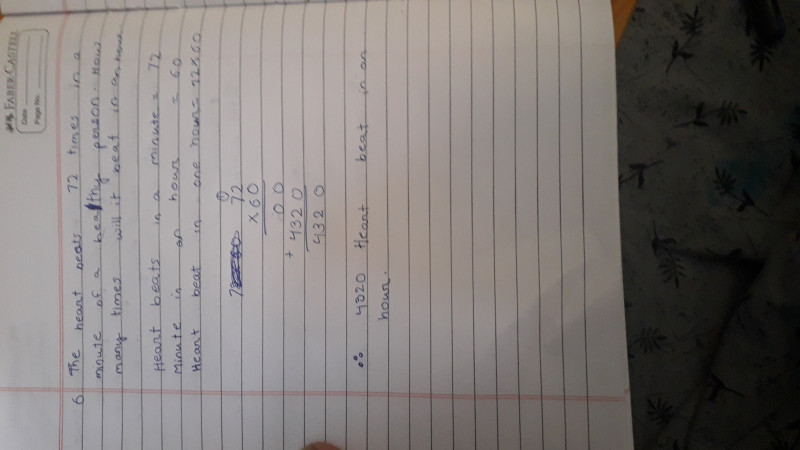 FABER-CASTELL
Date
Page No.
6 The heart beats 72 times in a
minute of a healthy person. How
many times will it beat in an hour.
Heart beats in a minute = 72
Minute in an hour = 60
Heart beat in one hour = 72×60
72
×60
00
+ 4320
4320
∴ 4320 Heart beat in an
hour.